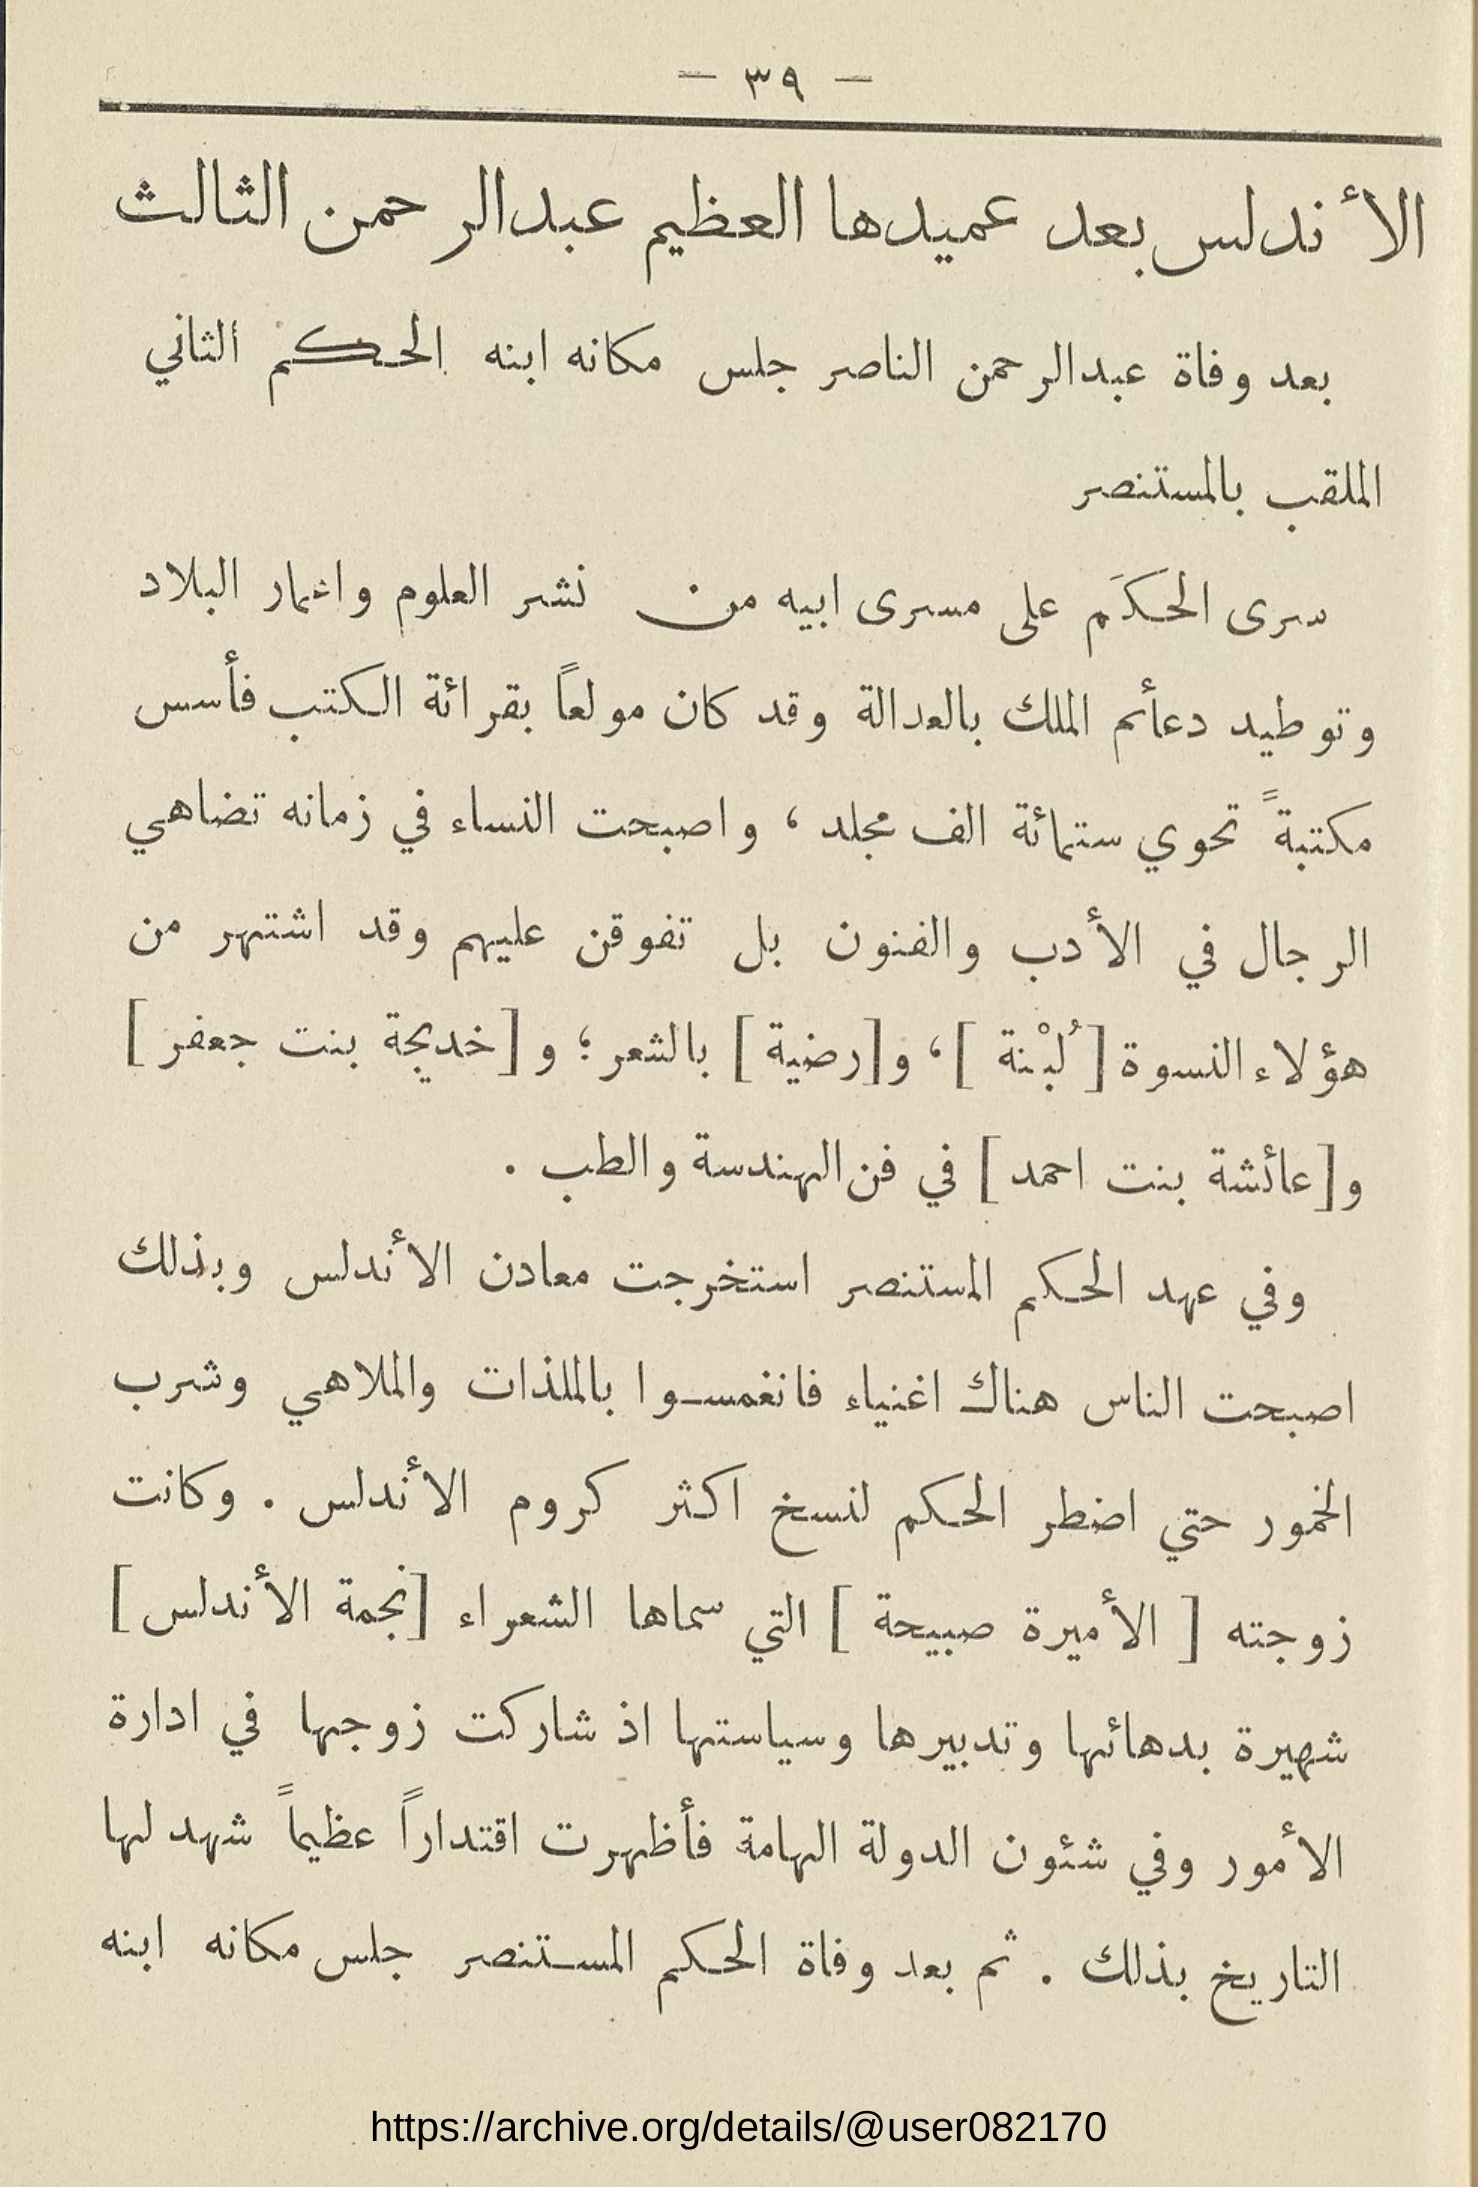 — ٣٩ —
الأندلس بعد عميدها العظيم عبدالرحمن الثالث
بعد وفاة عبدالرحمن الناصر جلس مكانه ابنه الحكم الثاني
الملقب بالمستنصر
سرى الحكَم على مسرى ابيه من نشر العلوم واثمار البلاد
وتوطيد دعأئم الملك بالعدالة وقد كان مولعاً بقرائة الكتب فأسس
مكتبةً تحوي ستمائة الف مجلد ، واصبحت النساء في زمانه تضاهي
الرجال في الأدب والفنون بل تفوقن عليهم وقد اشتهر من
هؤلاء النسوة [ لُبْنة ] ، و[رضية ] بالشعر ؛ و [خديجة بنت جعفر ]
و[عائشة بنت احمد ] في فن الهندسة والطب .
وفي عهد الحكم المستنصر استخرجت معادن الأندلس وبذلك
اصبحت الناس هناك اغنياء فانغمسوا بالملذات والملاهي وشرب
الخمور حتي اضطر الحكم لنسخ اكثر كروم الأندلس . وكانت
زوجته [ الأميرة صبيحة ] التي سماها الشعراء [نجمة الأندلس]
شهيرة بدهائها وتدبيرها وسياستها اذ شاركت زوجها في ادارة
الأمور وفي شئون الدولة الهامة فأظهرت اقتداراً عظيماً شهد لها
التاريخ بذلك . ثم بعد وفاة الحكم المستنصر جلس مكانه ابنه
https://archive.org/details/@user082170